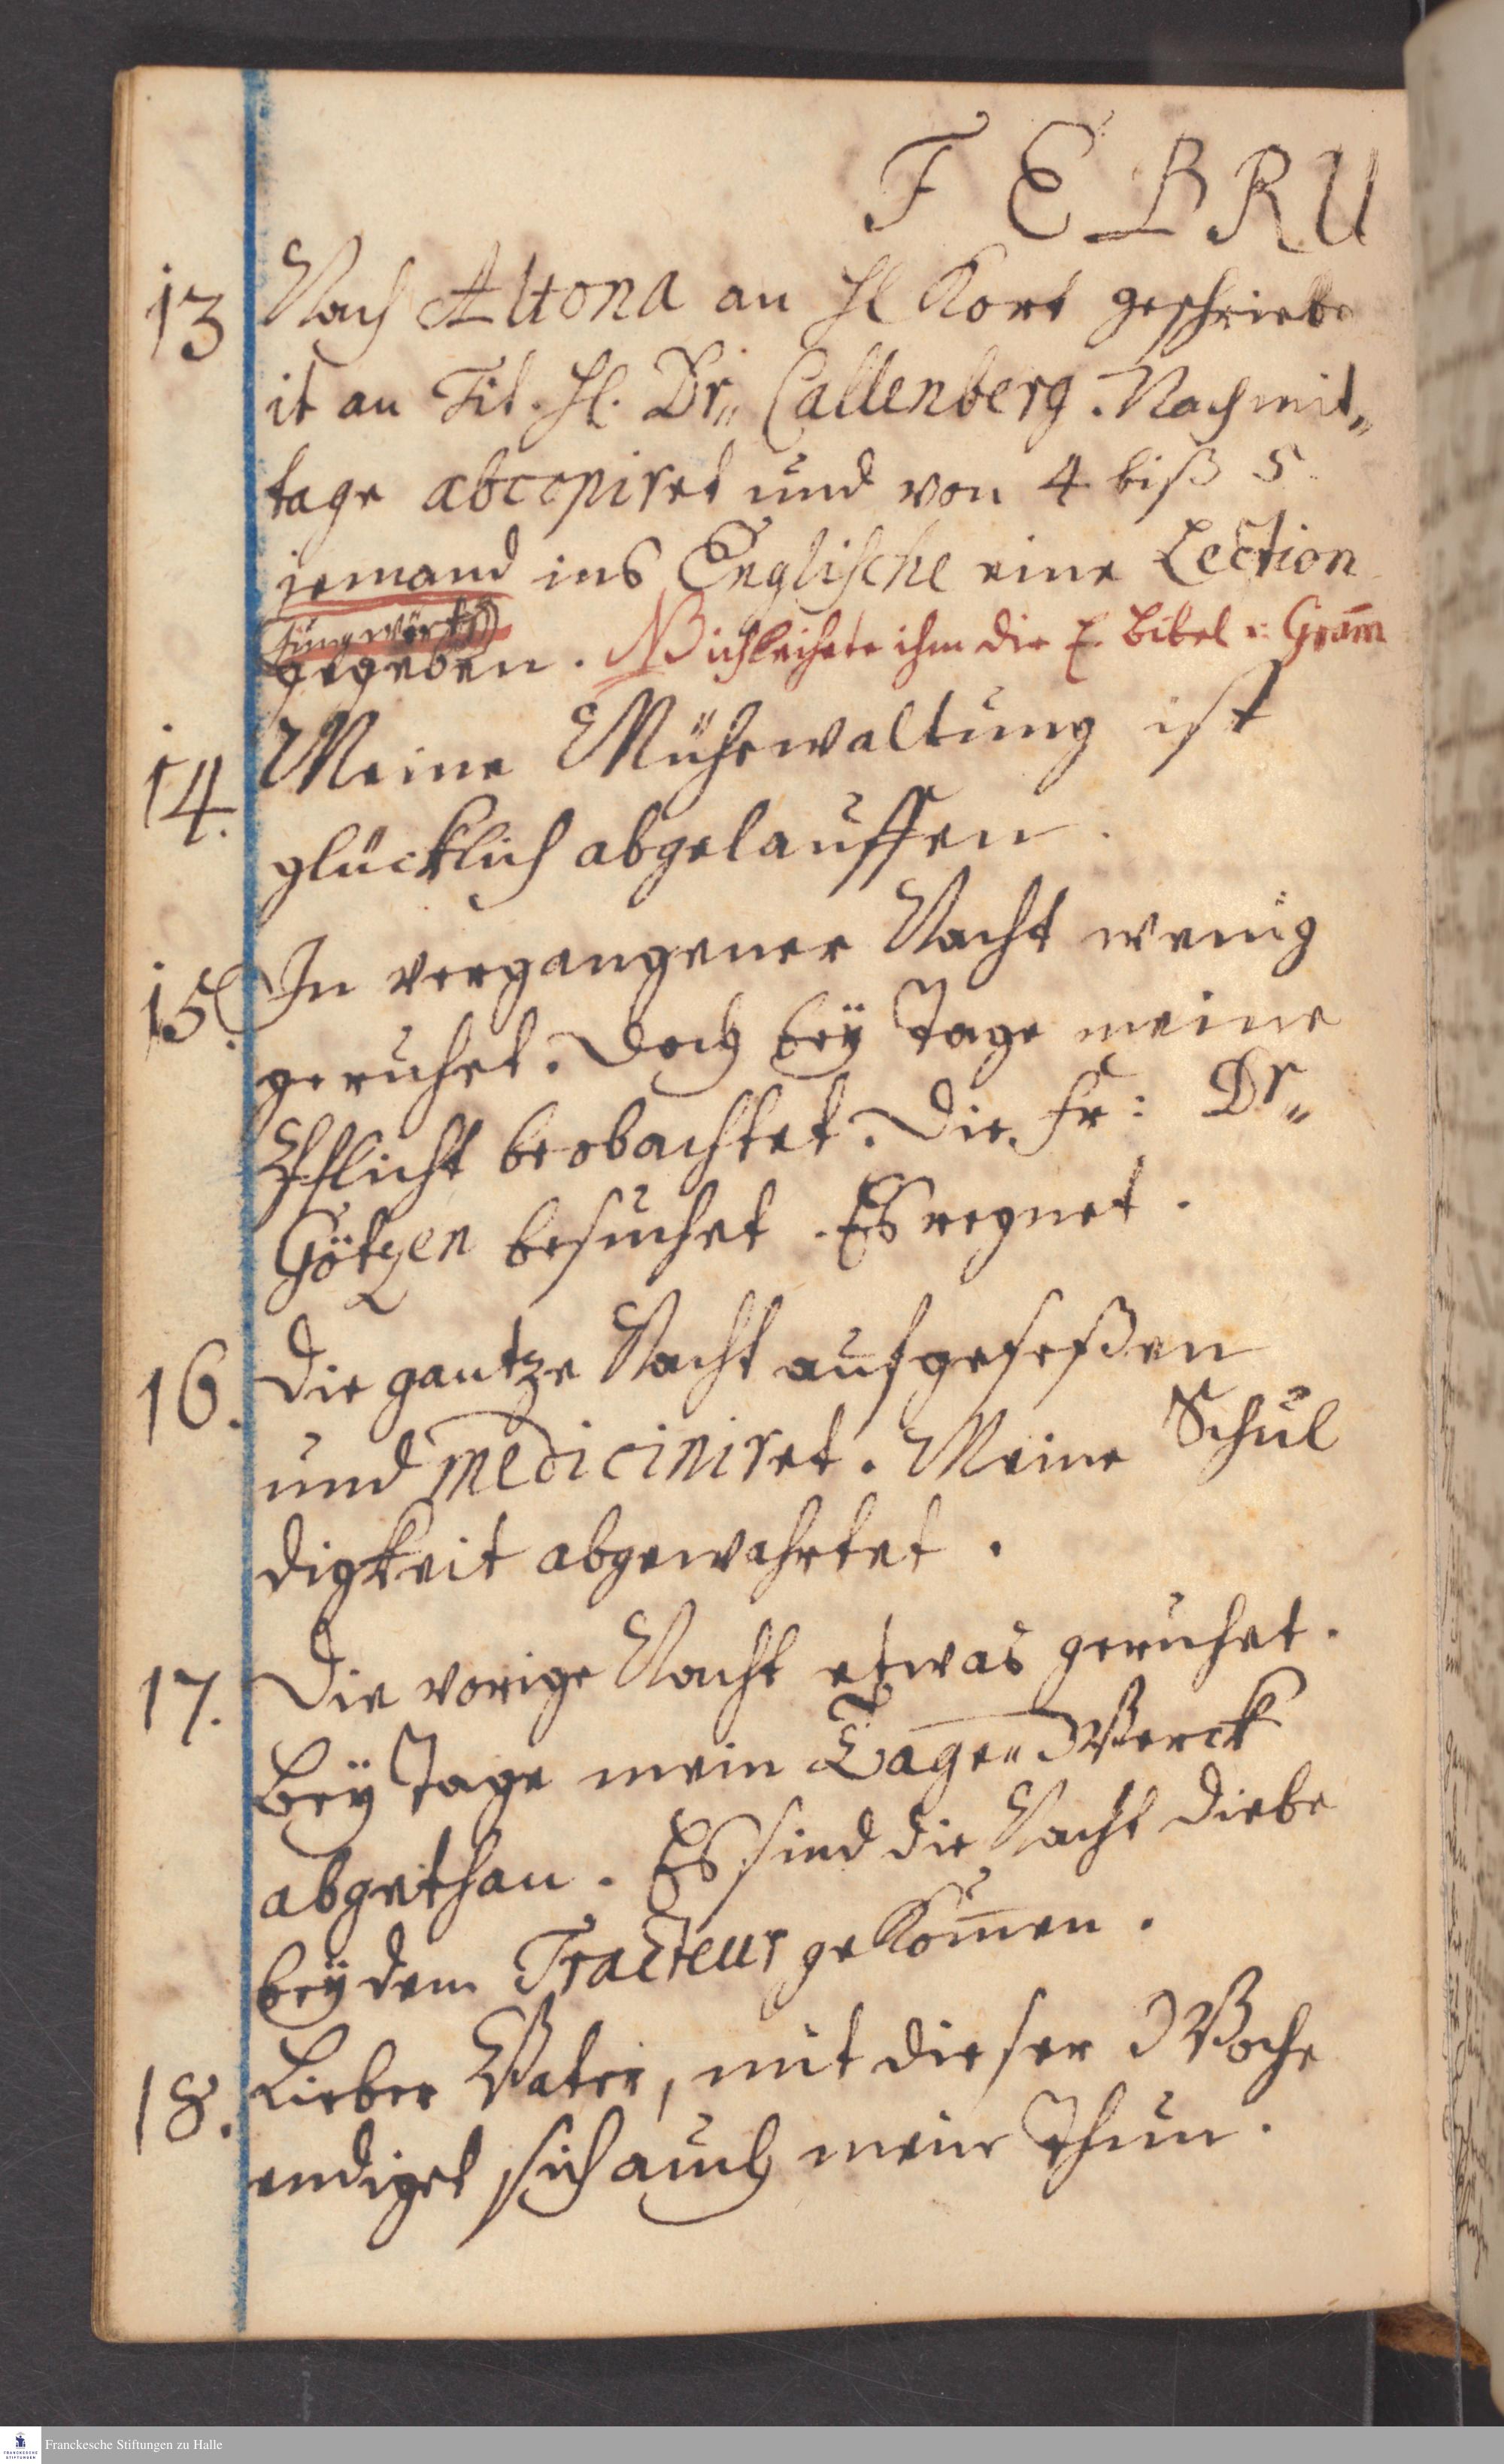 FEBRU
13 Nach Altona an H. Kort geschriebe
it an Tit. H. Dr„ Callenberg. Nachmit„
tage abcopiret und von 4 biß 5
jemand ins Englische eine Lection
(Jungwirth)
gegeben. NB ich leihete ihm die E. Bibel u. Gram̄
14. Meine Mühewaltung ist
glücklich abgelauffen.
15. In vergangener Nacht wenig
geruhet. Doch bey Tage meine
Pflicht beobachtet. Die Fr: Dr„
Götzen besuchet. Es regnet.
16. Die gantze Nacht aufgeseßen
und mediciniret. Meine Schul
digkeit abgewahrtet.
17. Die vorige Nacht etwas geruhet.
Bey Tage mein Tage„Werck
abgethan. Es sind die Nacht Diebe
bey dem Tracteur gekom̄en.
18. Lieber Vater, mit dieser Woche
endiget sich auch mein Thun.
Franckesche Stiftungen zu Halle